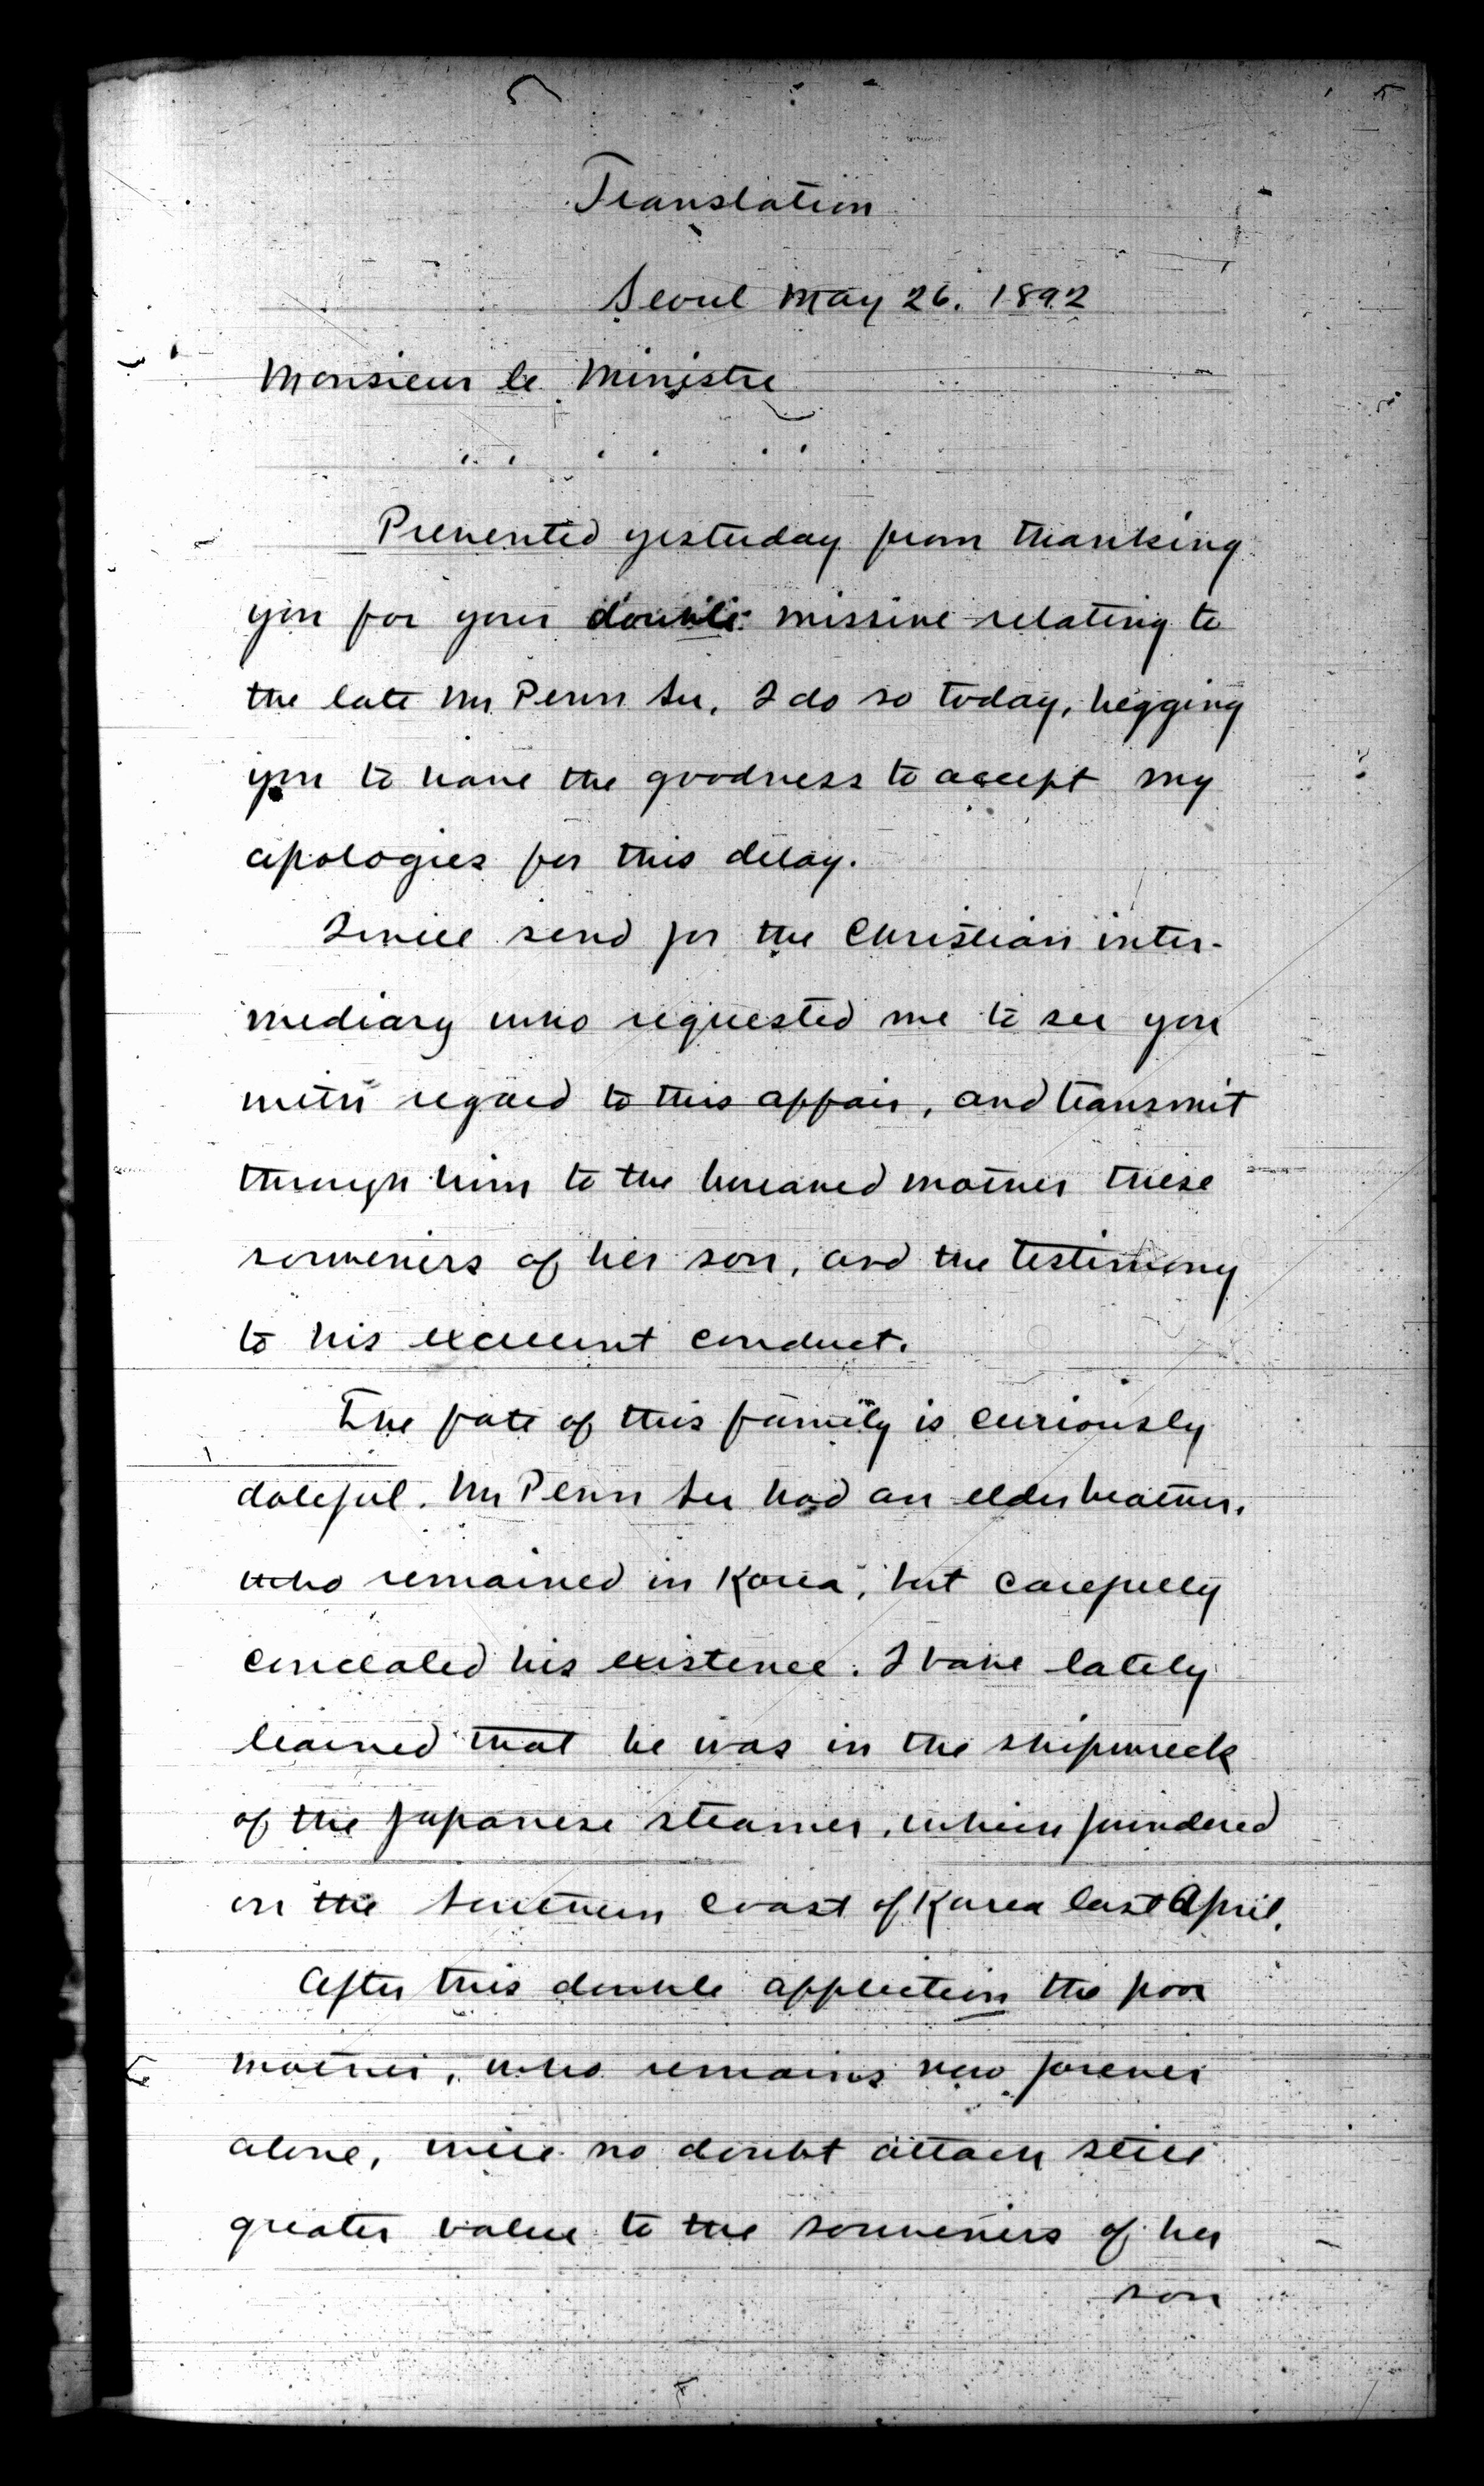 Translation
Seoul May 26. 1892
Monsieur le Ministre
Prevented yesterday from thanking
you for your double missive relating to
the late Mr Penn Su, I do so today, begging
you to have the goodness to accept my
apologies for this delay.
I will send for the Christian inter-
mediary who requested me to see you
with regard to this affair, and transmit
through him to the bereaved mother these
souvenirs of her son, and the testimony
to his excellent conduct.
The fate of this family is curiously
doleful. Mr Penn Su had an elder brother,
who remained in Korea, but carefully
concealed his existence. I have lately
learned that he was in the shipwreck
of the Japanese steamer, which foundered
on the Southern coast of Korea last April.
After this double affliction the poor
mother, who remains now forever
alone, will no doubt attach still
greater value to the souvenirs of her
son